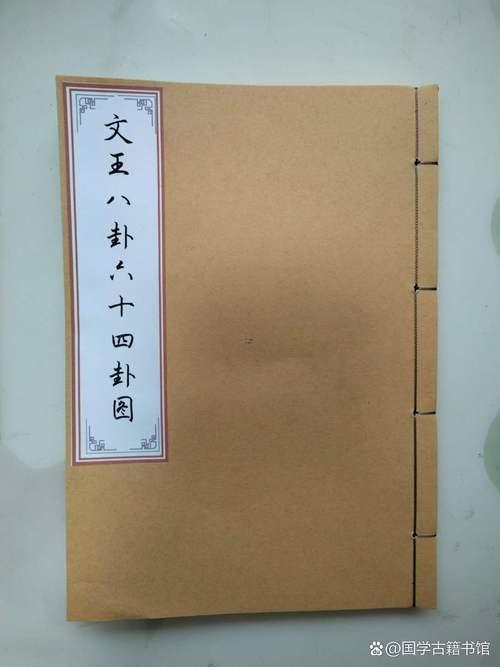 文王八卦六十四卦图
国学古籍书馆